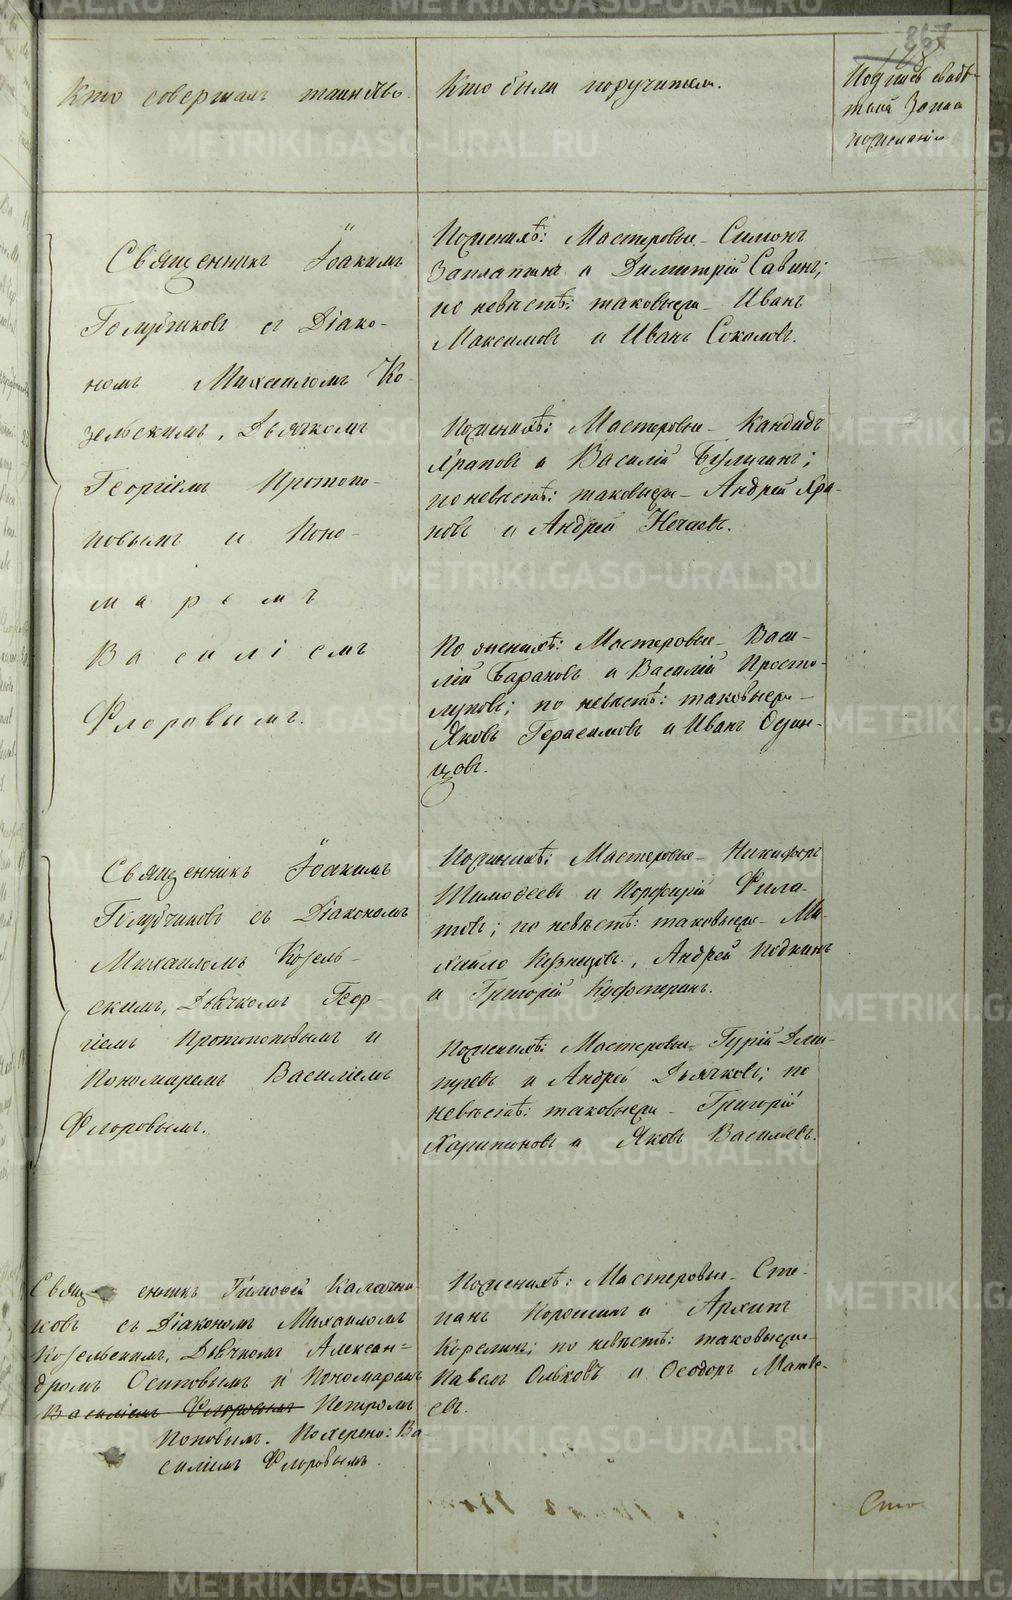 867
Кто совершалъ таинство.
Кто были поручители.
Подпись свидѣ-
телей записи
по желанію
Священникъ Іоакимъ
Голубчиковъ съ Діако-
номъ Михаиломъ Ко-
зельскимъ, Дьячкомъ
Георгіемъ Протопо-
повымъ и Поно-
маремъ
Василіемъ
Флоровымъ.
По женихѣ: Мастеровые – Симонъ
Заплатинъ и Димитрій Савинъ;
по невѣстѣ: таковыеже – Иванъ
Максимовъ и Иванъ Соколовъ.
По женихѣ: Мастеровые – Кандидъ
Храповъ и Василій Булычинъ;
по невѣстѣ: таковыеже – Андрей Хра-
повъ и Андрей Нечаевъ.
По женихѣ: Мастеровые – Васи-
лій Барановъ и Василій Просто-
луповъ; по невѣстѣ: таковыеже –
Яковъ Герасимовъ и Иванъ Один-
цовъ.
Священникъ Іоакимъ
Голубчиковъ съ Діакономъ
Михаиломъ Козель-
скимъ, Дьячкомъ Геор
гіемъ Протопоповымъ и
Пономаремъ Василіемъ
Флоровымъ.
По женихѣ: Мастеровые – Никифоръ
Тимофеевъ и Порфирій Фила-
товъ; по невѣстѣ: таковыеже – Ми-
хайло Кузнецовъ, Андрей Подкинъ
и Григорій
По женихѣ: Мастеровые – Гурій Дми-
тріевъ и Андрей Дьячковъ; по
невѣстѣ: таковыеже – Григорій
Харитоновъ и Яковъ Васильевъ.
Священникъ Тимофей Калачни-
ковъ съ Діакономъ Михаиломъ
Козельскимъ, Дьячкомъ Алексан-
дромъ Осиповымъ и Пономаремъ
Василіемъ Флоровымъ Петромъ
Поповымъ. Почерено: Ва
силіемъ Флоровымъ.
По женихѣ: Мастеровые – Сте-
панъ Порошинъ и Архипъ
Корелинъ; по невѣстѣ: таковыеже –
Павелъ Ольковъ и Ѳеодоръ Матве-
евъ.
Сто
METRIKI.GASO-URAL.RU